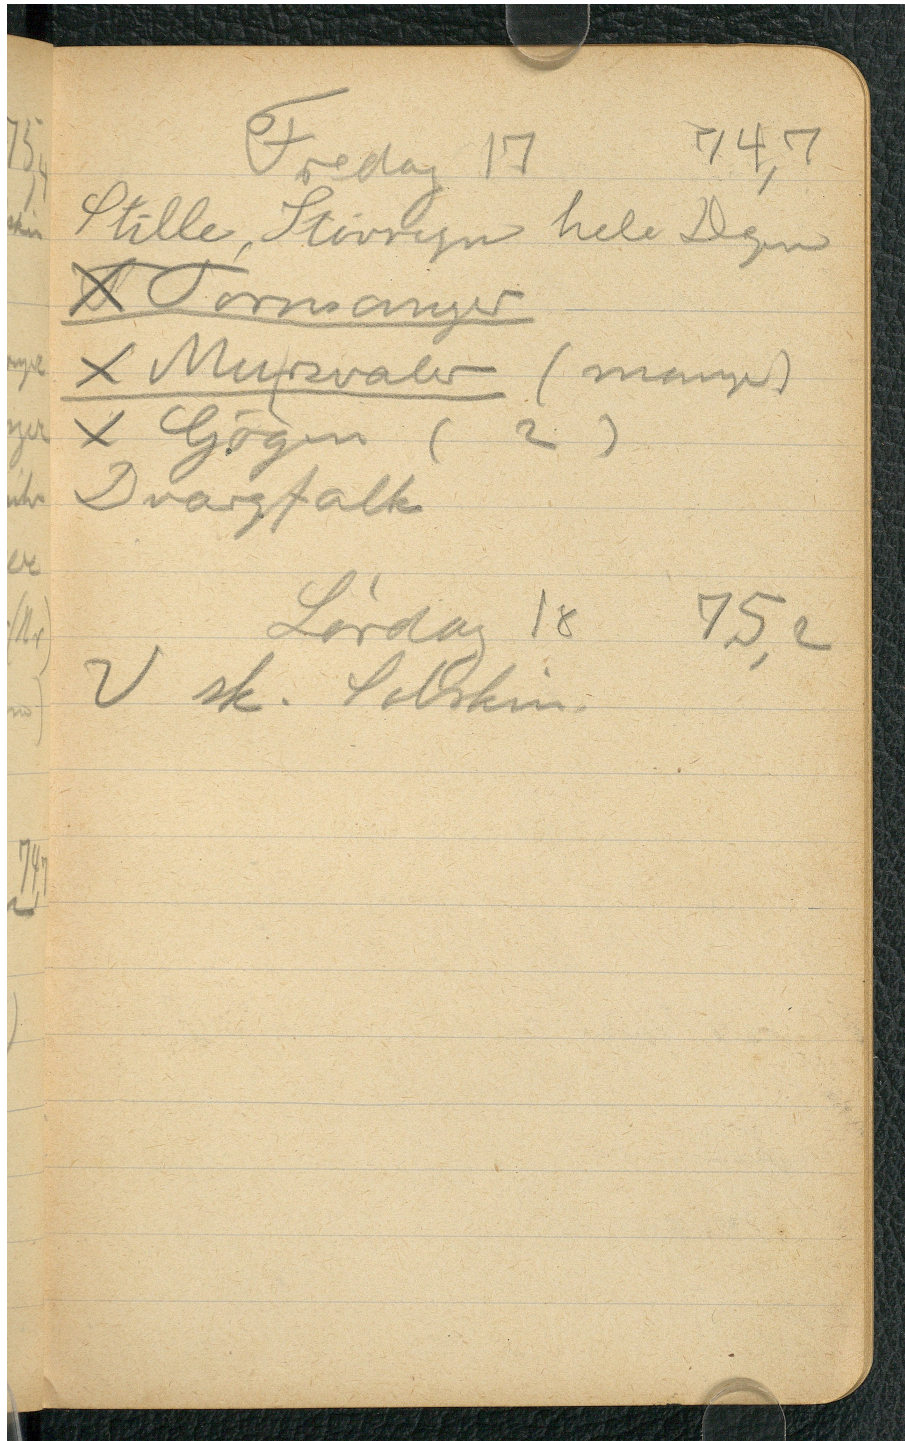 Fredag 17 74,7
Stille, Støvregn hele Dagen
X Tornsanger
X Mursvaler (mange)
X Gøgen (2)
Dvargfalk
Lørdag 18 75,2
V sk. Solskin.